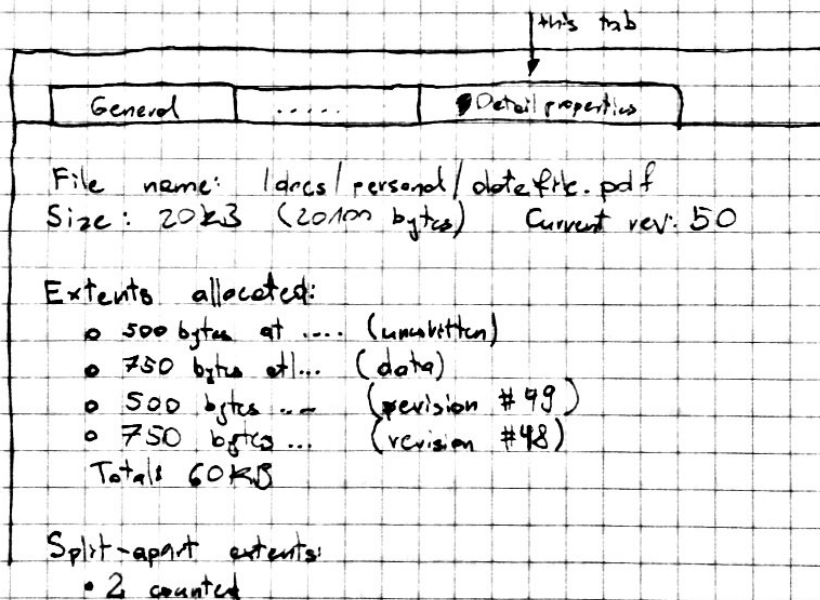 this tab
General ..... Detail properties
File name: /docs/personal/datefile.pdf
Size: 20kB (20100 bytes) Current rev: 50
Extents allocated:
500 bytes at .... (unwritten)
750 bytes at ... (data)
500 bytes ... (revision #49)
750 bytes ... (revision #48)
Total: 60KB
Split-apart extents:
2 counted